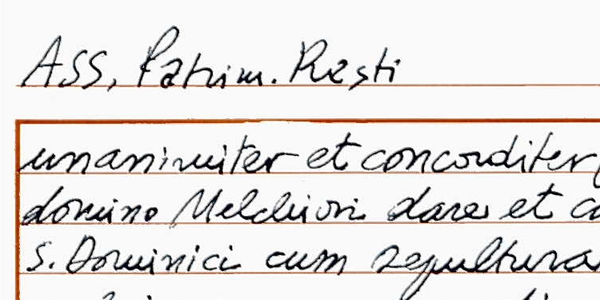 ASS, Patrim. Resti
unanimiter et concorditer
domino Melchiori dare et co
S. Dominici cum sepultura